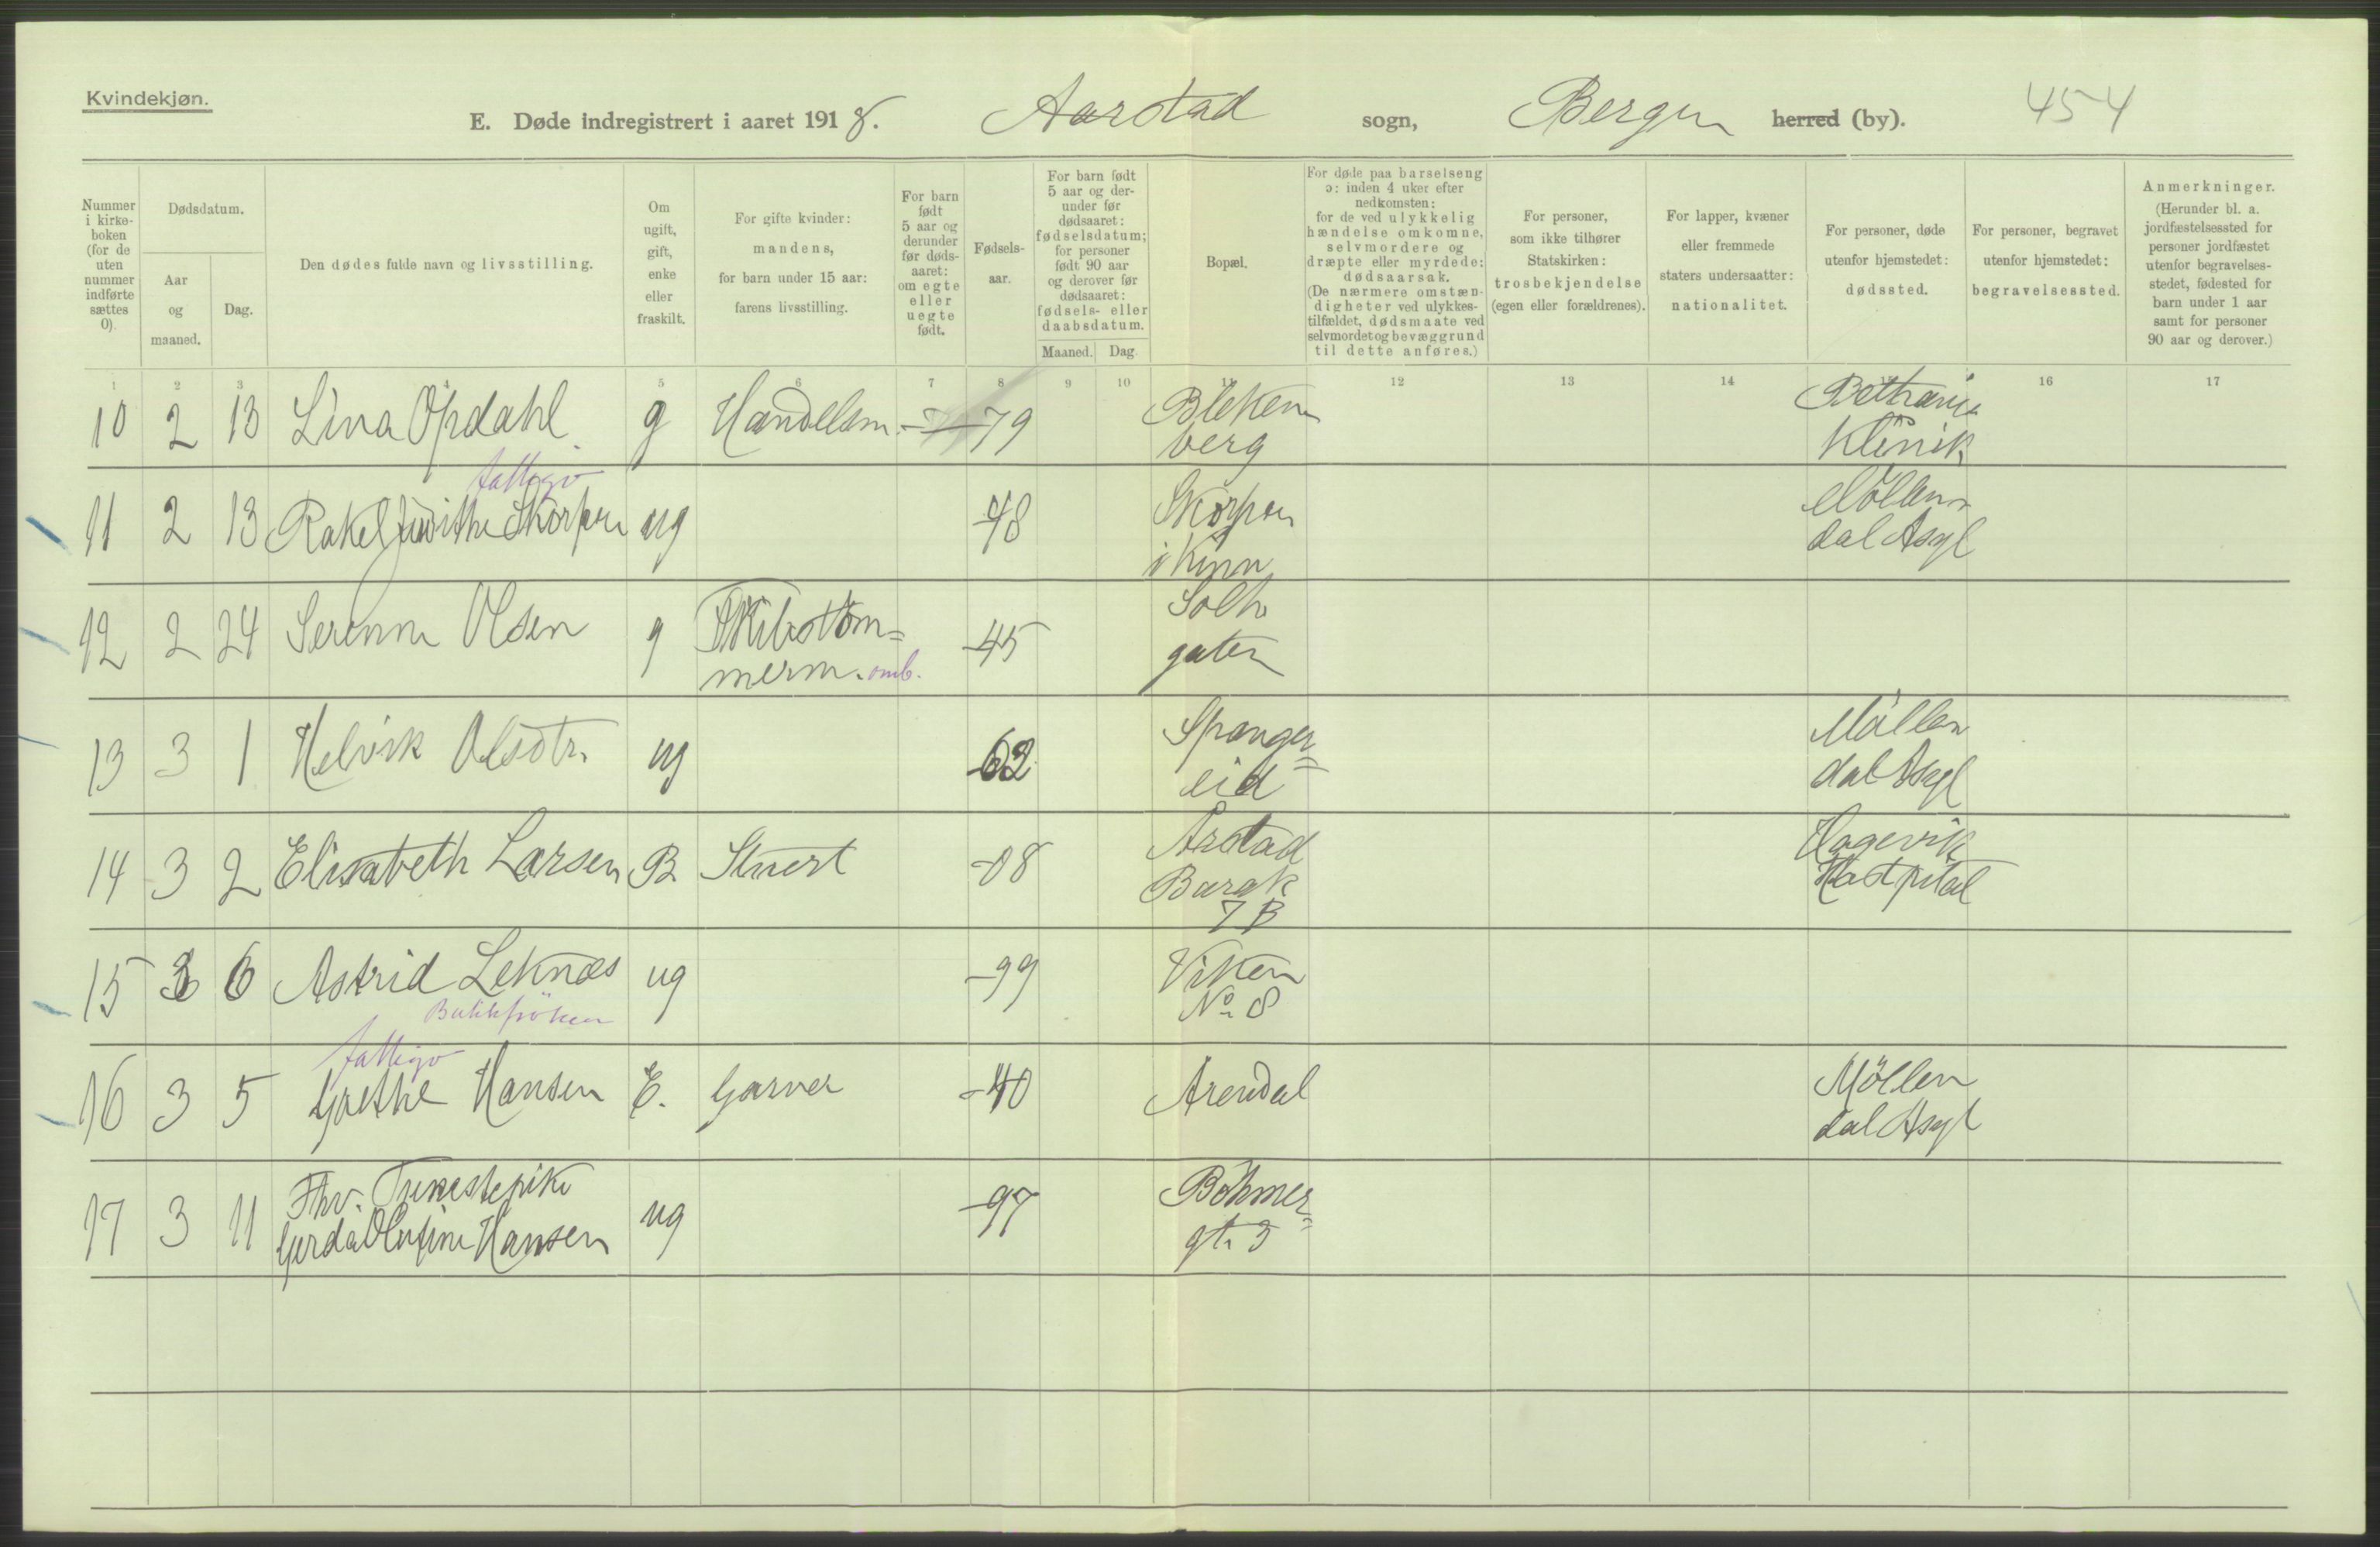 Kvindekjøn.
E. Døde indregistrert i aaret 1918. Aarstad sogn, Bergen herred (by). 454
Nummer i kirkeboken (for de uten nummer indførte sættes 0).
Dødsdatum.
Aar og maaned.
Dag.
Den dødes fulde navn og livsstilling.
Om ugift, gift, enke eller fraskilt.
For gifte kvinder: mandens, for barn under 15 aar: farens livsstilling.
For barn født 5 aar og derunder før dødsaaret: om egte eller uegte født.
Fødselsaar.
For barn født 5 aar og derunder før dødsaaret: fødselsdatum; for personer født 90 aar og derover før dødsaaret: fødsels- eller daabsdatum.
Maaned. Dag.
Bopæl.
For døde paa barselseng ɔ: inden 4 uker efter nedkomsten; for de ved ulykkelig hændelse omkomne, selvmordere og dræpte eller myrdede: dødsaarsak. (De nærmere omstændigheter ved ulykkestilfældet, dødsmaate ved selvmordet og bevæggrund til dette anføres.)
For personer, som ikke tilhører Statskirken: trosbekjendelse (egen eller forældrenes).
For lapper, kvæner eller fremmede staters undersaatter: nationalitet.
For personer, døde utenfor hjemstedet: dødssted.
For personer, begravet utenfor hjemstedet: begravelsessted.
Anmerkninger. (Herunder bl. a. jordfæstelsessted for personer jordfæstet utenfor begravelsesstedet, fødested for barn under 1 aar samt for personer 90 aar og derover.)
1 2 3 5 6 7 8 9 10 11 12 13 14 15 16 17
10 2 13 Lina Opdahl g Handelsm. -79 Bleken berg Bethania Klinik
fattigv
11 2 13 Rakel Skorpen ug -48 Skorpen i Kinn Möllendal Asyl
12 2 24 Olsen g Skibstöm=merm. omb. -45 gaten
13 3 1 Helvik Olsdtr. ug -62 Spanger=eid Möllendal Asyl
14 3 2 Elisabeth Larsen B Stuert -08 Årstad Barak 7 B Hagevik Hospital
15 3 6 Astrid Leknæs ug -99 Viken No 8
Butikfröken
fattigv
16 3 5 Grethe Hansen E. Garver -40 Arendal Möllendal Asyl
17 3 11 Fhv. Tjenestepike Gerda Olufine Hansen ug -97 Böhmer=gt. 3